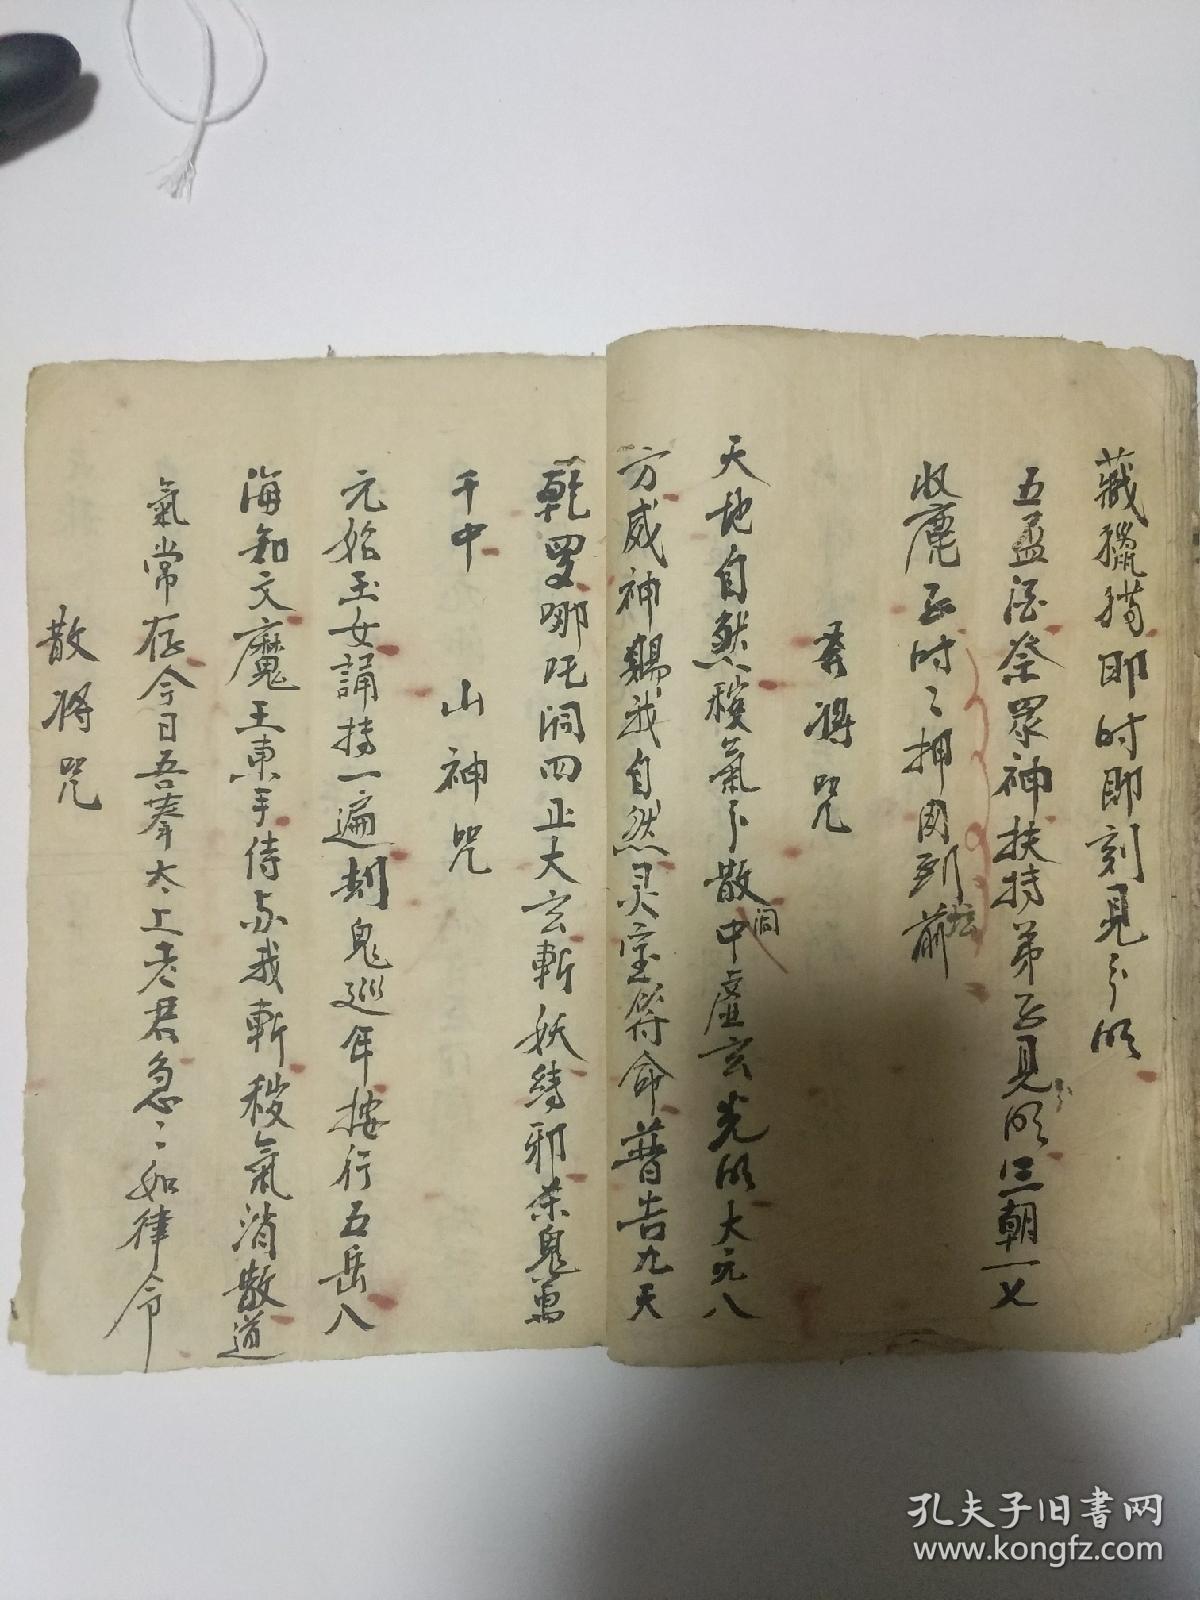 藏獵猫即时即刻見分明
五盃酒祭眾神扶持弟子見明三朝一七
收麂子时〻押囬到坛前
咒
天地自然穢氣分散洞中虛玄光明大元八
方威神賜我自然灵宝符命普告九天
乾罗哪吒洞四正大玄斬妖縛邪杀鬼萬
千中 山神咒
元始玉女誦持一遍刦鬼巡年按行五岳八
海知文魔王東手侍衛我斬穢氣消散道
氣常存今日吾奉太上老君急〻如律令
散将咒
孔夫子旧书网
www.kongfz.com